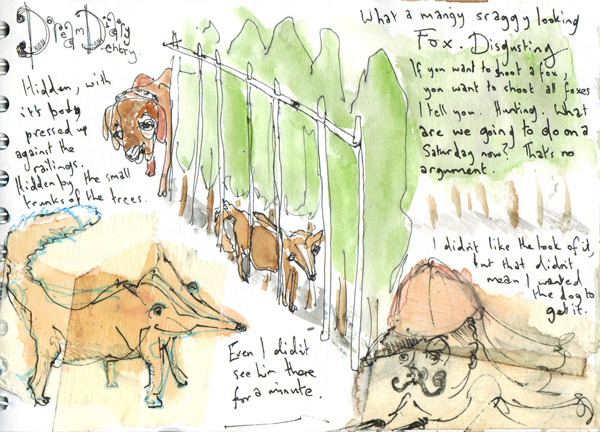 Dream Diary
entry.
Hidden, with
it's body
pressed up
against the
railings.
Hidden by the small
trunks of the trees.
What a mangy scraggy looking
Fox. Disgusting
If you want to shoot a fox,
you want to shoot all foxes
I tell you. Hunting. What
are we going to do on a
Saturday now? That's no
argument.
I didn't like the look of it,
but that didn't
mean I wanted
the dog to
get it.
Even I didn't
see him there
for a minute.